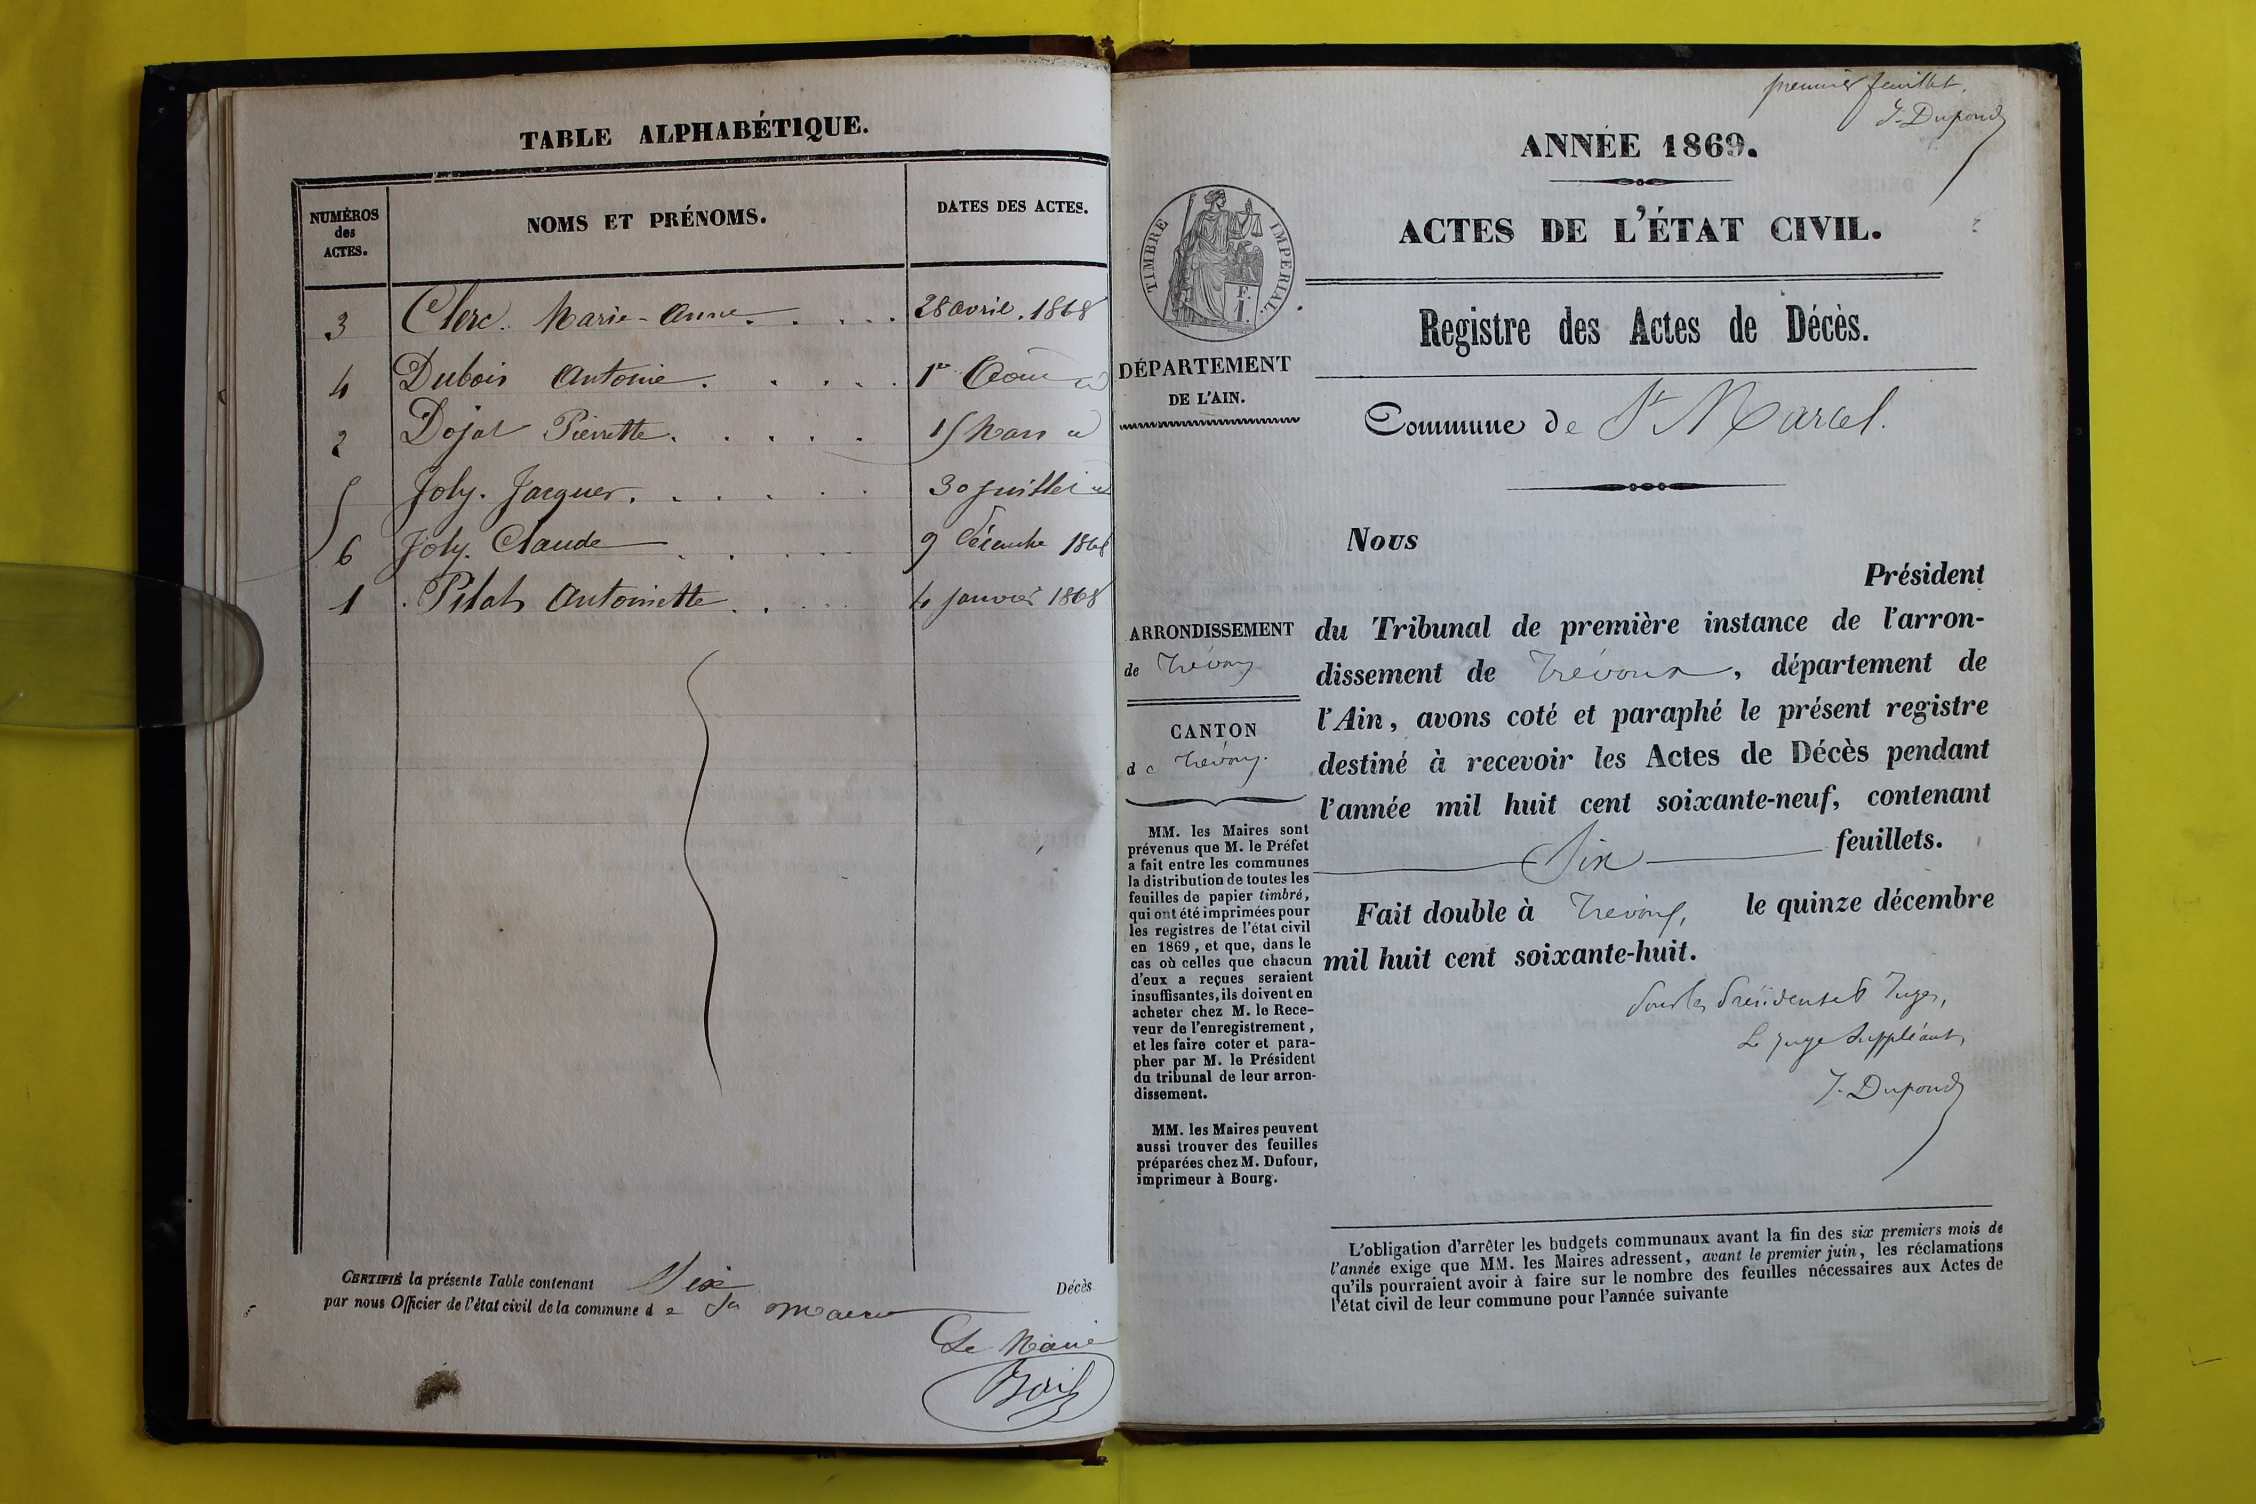 TABLE ALPHABÉTIQUE.
NUMÉROS des ACTES.
NOMS ET PRÉNOMS.
DATES DES ACTES.
3 Clerc. Marie-Anne. . . . . 28 avril. 1868
4 Dubois Antoine. . . . . 1er Aout d
2 Dojat Pierrette. . . . . 15 Mars d
5 Joly. Jacques. . . . . 30 juillet d
6 Joly. Claude . . . . 9 Décembre 1868
1 Pilat Antoinette. . . 4 janvier 1868
CERTIFIÉ la présente Table contenant Six Décès
par nous Officier de l'état civil de la commune de St Marcel
Le Maire
premier feuillet.
J. Dupond
ANNÉE 1869.
ACTES DE L'ÉTAT CIVIL.
TIMBRE IMPERIAL.
F.
1.
Registre des Actes de Décès.
DÉPARTEMENT
DE L'AIN.
Commune de St Marcel.
Nous
Président
ARRONDISSEMENT
de Trévoux
CANTON
de Trévoux.
du Tribunal de première instance de l'arron-
dissement de Trévoux, département de
l'Ain, avons coté et paraphé le présent registre
destiné à recevoir les Actes de Décès pendant
l'année mil huit cent soixante-neuf, contenant
Six feuillets.
Fait double à Trévoux, le quinze décembre
mil huit cent soixante-huit.
Pour les Présidents & Juges,
Le juge Suppléant,
J. Dupond
MM. les Maires sont
prévenus que M. le Préfet
a fait entre les communes
la distribution de toutes les
feuilles de papier timbré,
qui ont été imprimées pour
les registres de l'état civil
en 1869, et que, dans le
cas où celles que chacun
d'eux a reçues seraient
insuffisantes, ils doivent en
acheter chez M. le Rece-
veur de l'enregistrement,
et les faire coter et para-
pher par M. le Président
du tribunal de leur arron-
dissement.
MM. les Maires peuvent
aussi trouver des feuilles
préparées chez M. Dufour,
imprimeur à Bourg.
L'obligation d'arrêter les budgets communaux avant la fin des six premiers mois de
l'année exige que MM. les Maires adressent, avant le premier juin, les réclamations
qu'ils pourraient avoir à faire sur le nombre des feuilles nécessaires aux Actes de
l'état civil de leur commune pour l'année suivante